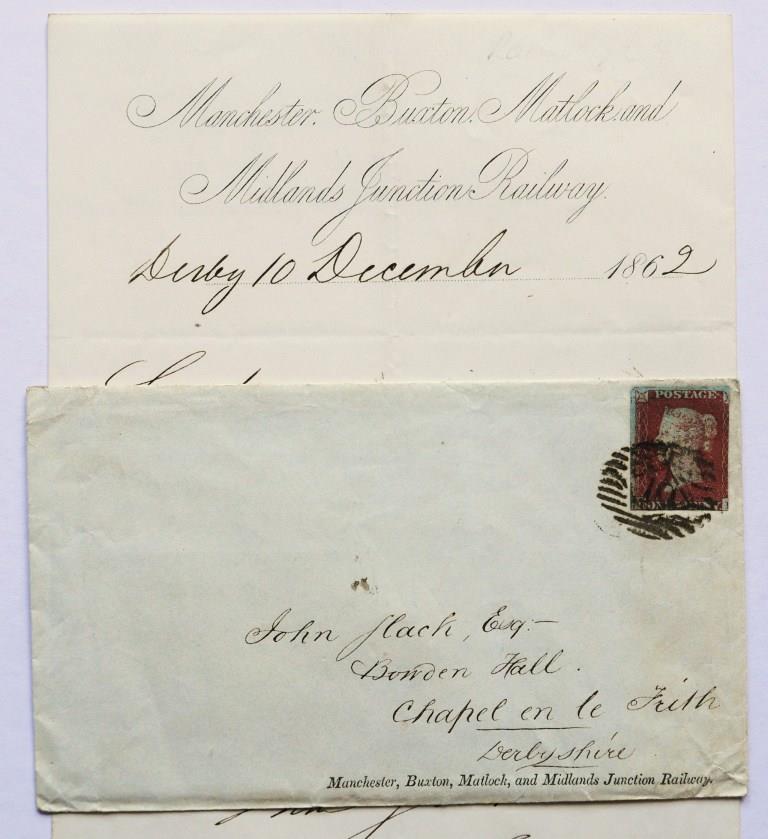 Manchester. Buxton. Matlock and
Midlands Junction Railway.
Derby 10 December 1862
POSTAGE
John Slack, Esq:-
Bowden Hall.
Chapel en le Frith
Derbyshire
Manchester, Buxton, Matlock, and Midlands Junction Railway.